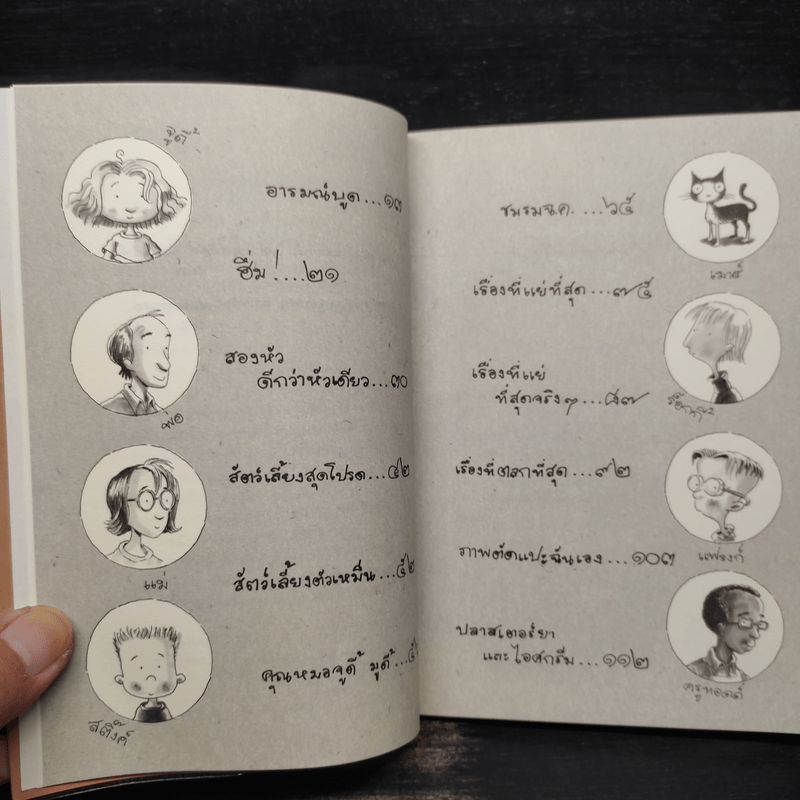 จูดี้
อารมณ์บูด...๑๓
ฮึ่ม!....๒๑
สองหัว
ดีกว่าหัวเดียว...๓๐
พ่อ
สัตว์เลี้ยงสุดโปรด...๔๒
แม่
สัตว์เลี้ยงตัวเหม็น...๕๒
คุณหมอจูดี้ มูดี้...
สติ๊งค์
ชมรมฉ.ค. ...๖๕
เมาส์
เรื่องที่แย่ที่สุด...๗๕
เรื่องที่แย่
ที่สุดจริงๆ...๘๗
ร็อกกี้
เรื่องที่ตลกที่สุด...๙๒
แฟรงก์
ภาพตัดแปะฉันเอง...๑๐๓
ปลาสเตอร์ยา
และไอศกรีม...๑๑๒
ครูทอดด์